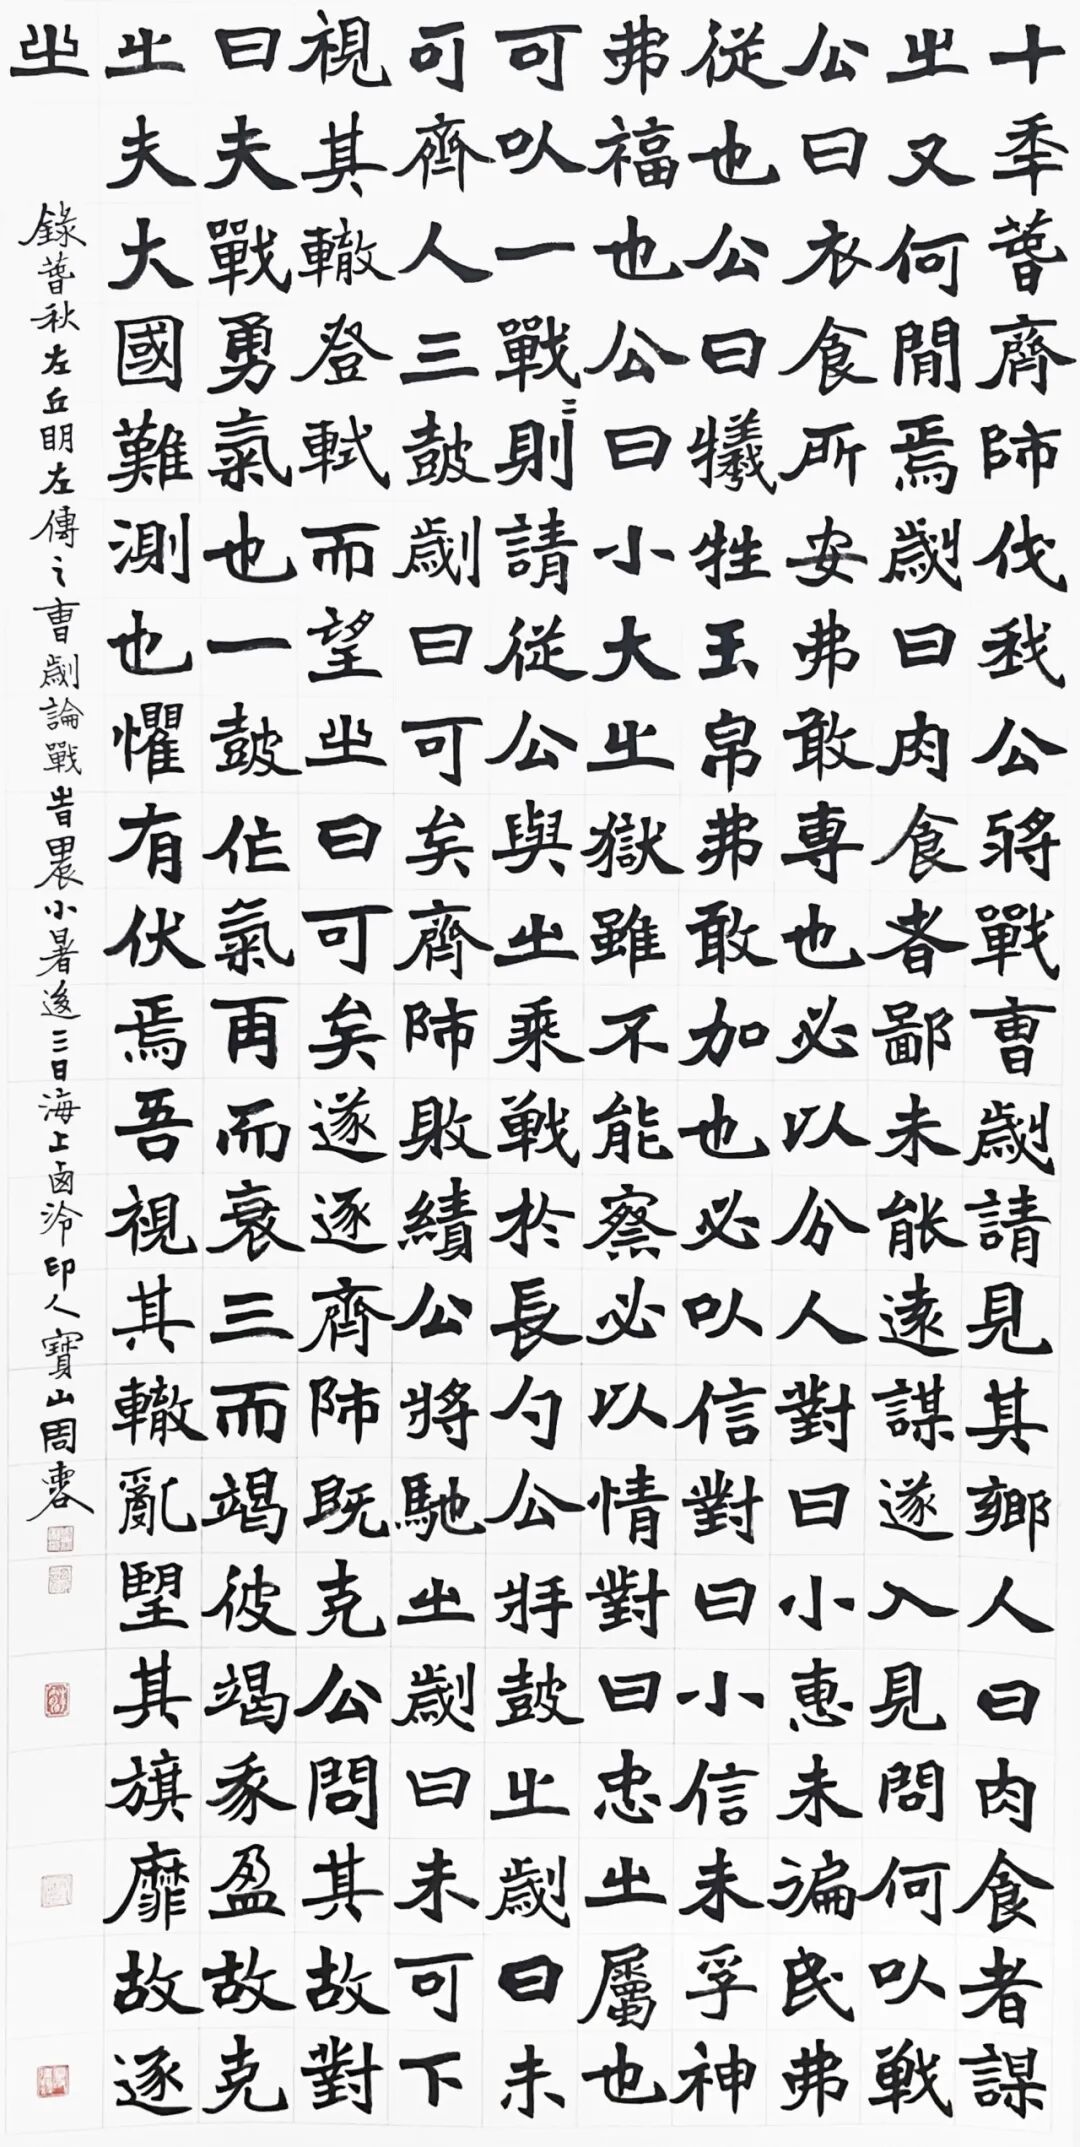 十年春齊師伐我公將戰曹劌請見其鄉人曰肉食者謀
之又何間焉劌曰肉食者鄙未能遠謀遂入見問何以戰
公曰衣食所安弗敢專也必以分人對曰小惠未徧民弗
從也公曰犧牲玉帛弗敢加也必以信對曰小信未孚神
弗福也公曰小大之獄雖不能察必以情對曰忠之屬也
可以一戰〻則請從公與之乘戰於長勺公將鼓之劌曰未
可齊人三鼓劌曰可矣齊師敗績公將馳之劌曰未可下
視其轍登軾而望之曰可矣遂逐齊師既克公問其故對
曰夫戰勇氣也一鼓作氣再而衰三而竭彼竭我盈故克
之夫大國難測也懼有伏焉吾視其轍亂望其旗靡故逐
之
錄春秋左丘明左傳之曹劌論戰時甲辰小暑後三日海上鹵泠印人寶山周